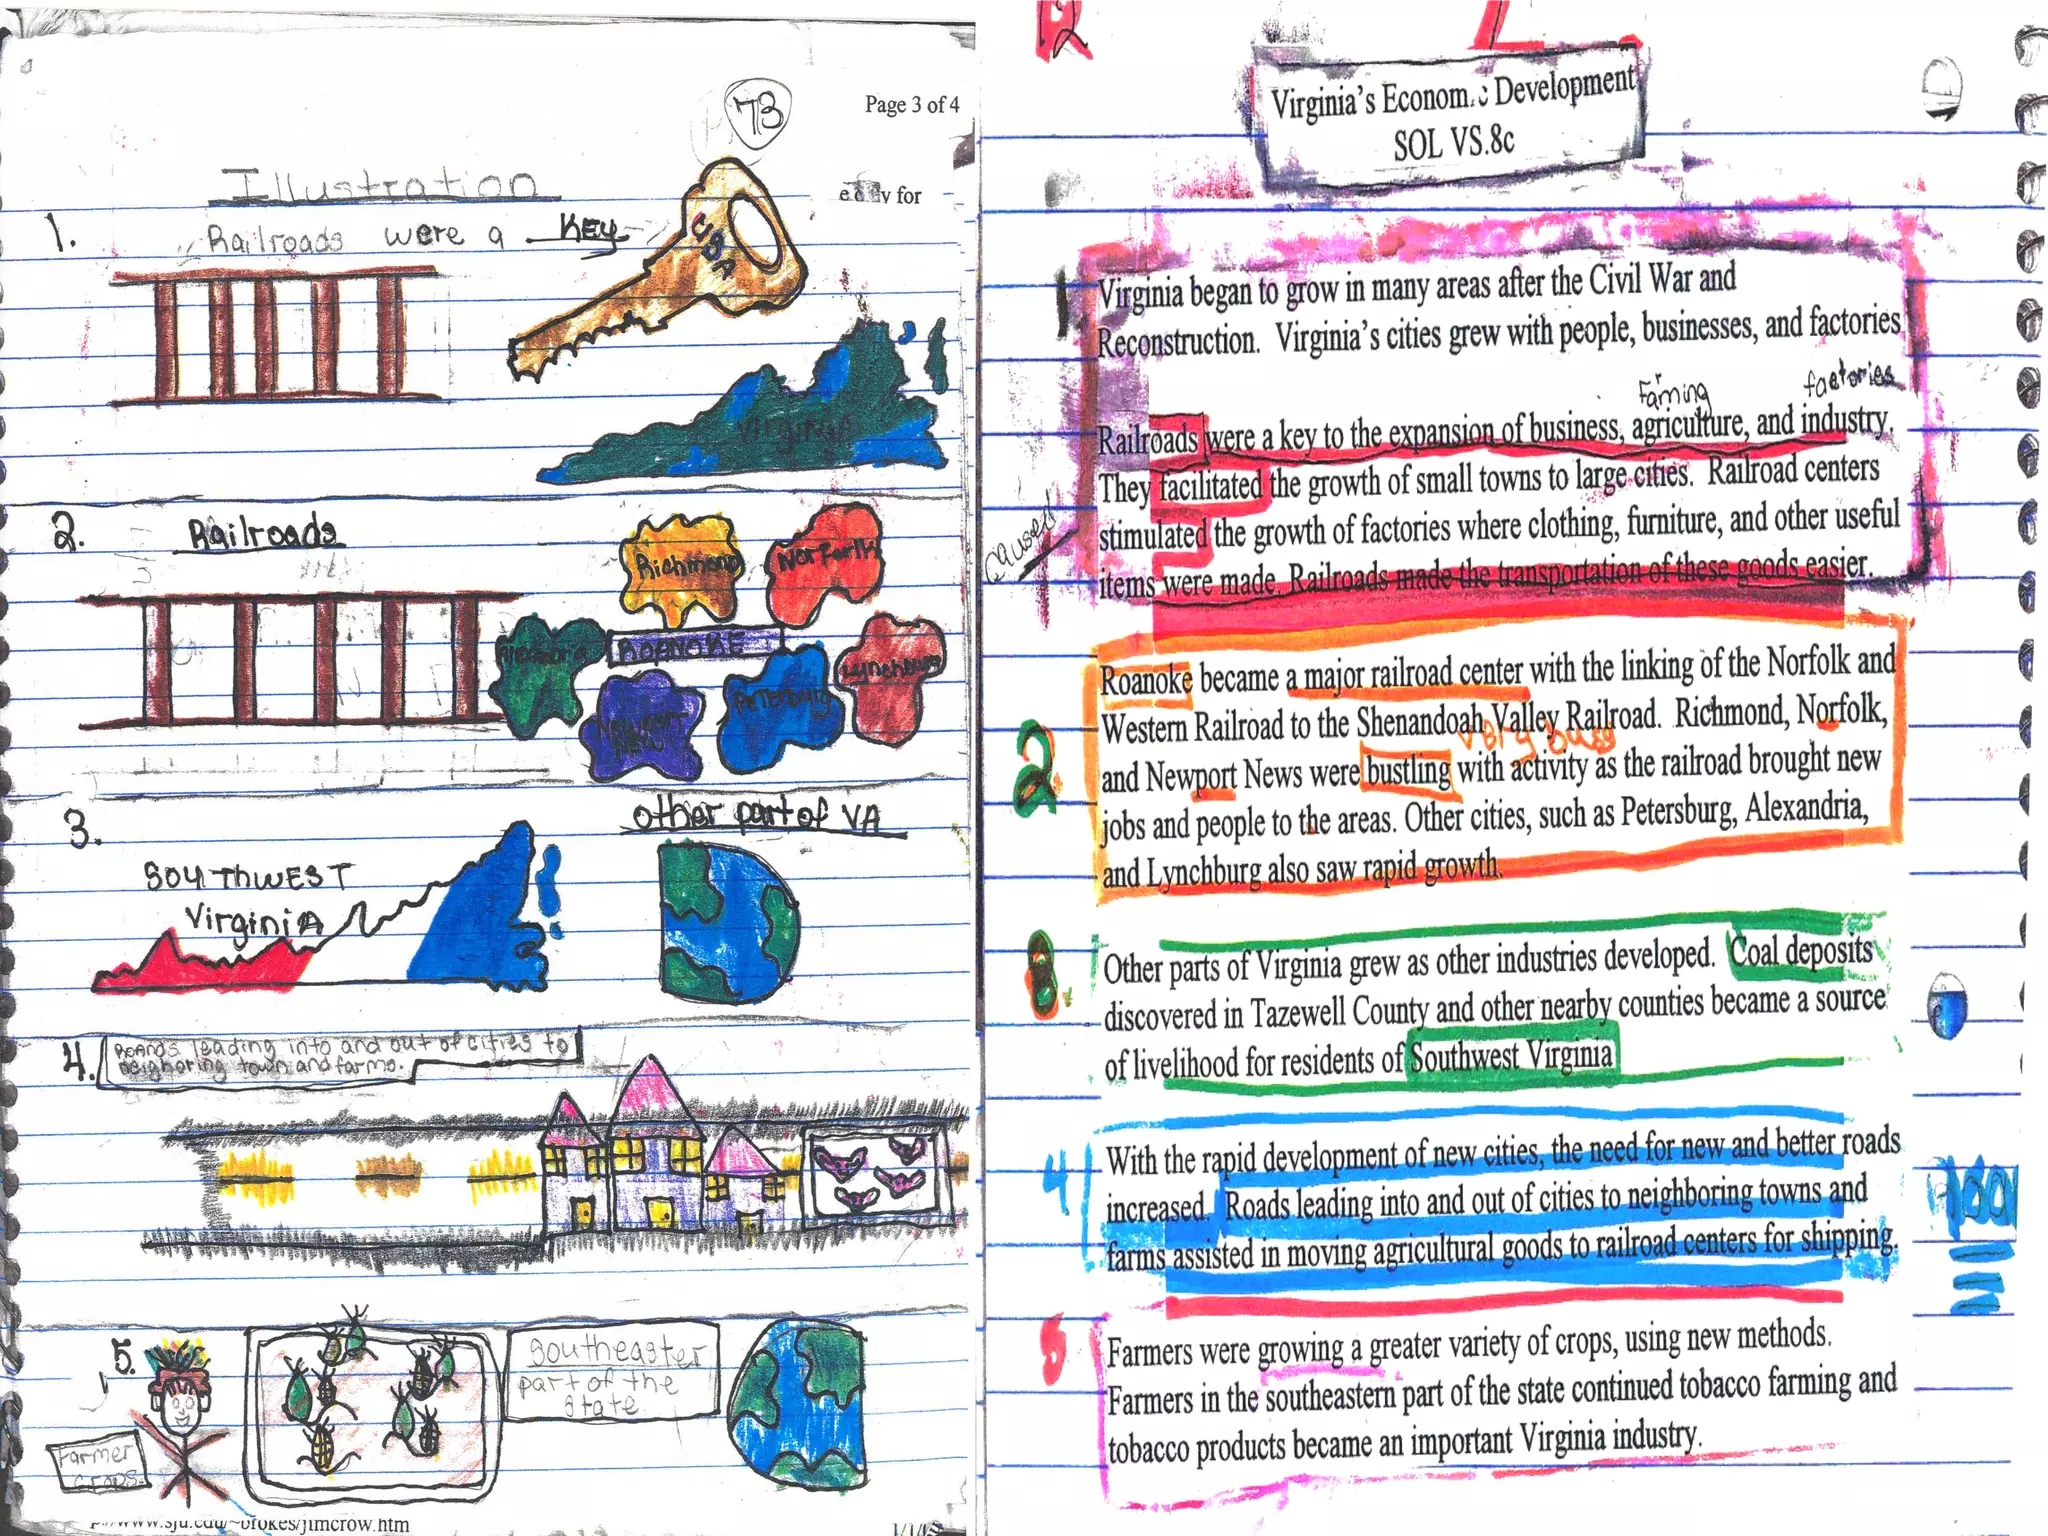 73
Page 3 of 4
Illustration
v for
1. Railroads were a KEY
USA
Virginia
2. Railroads
Richmond
Norforlk
ROANOKE
Lynchburg
Peterburg
NEW
3.
other part of VA
SOUTHWEST
VirginiA
4. ROADS leading into and out of cities to
neighboring town and farms.
5.
Southeaster
part of the
State
Farmer
crops.
www.sju.edu/~brokes/jimcrow.htm
Virginia's Economic Development
SOL VS.8c
1
Virginia began to grow in many areas after the Civil War and
Reconstruction. Virginia's cities grew with people, businesses, and factories
Farming factories
Railroads were a key to the expansion of business, agriculture, and industry.
They facilitated the growth of small towns to large cities. Railroad centers
stimulated the growth of factories where clothing, furniture, and other useful
items were made. Railroads made the transportation of these goods easier.
caused
2
Roanoke became a major railroad center with the linking of the Norfolk and
Western Railroad to the Shenandoah Valley Railroad. Richmond, Norfolk,
very busy
and Newport News were bustling with activity as the railroad brought new
jobs and people to the areas. Other cities, such as Petersburg, Alexandria,
and Lynchburg also saw rapid growth.
3
Other parts of Virginia grew as other industries developed. Coal deposits
discovered in Tazewell County and other nearby counties became a source
of livelihood for residents of Southwest Virginia
4
With the rapid development of new cities, the need for new and better roads
increased. Roads leading into and out of cities to neighboring towns and
farms assisted in moving agricultural goods to railroad centers for shipping.
100
5
Farmers were growing a greater variety of crops, using new methods.
Farmers in the southeastern part of the state continued tobacco farming and
tobacco products became an important Virginia industry.